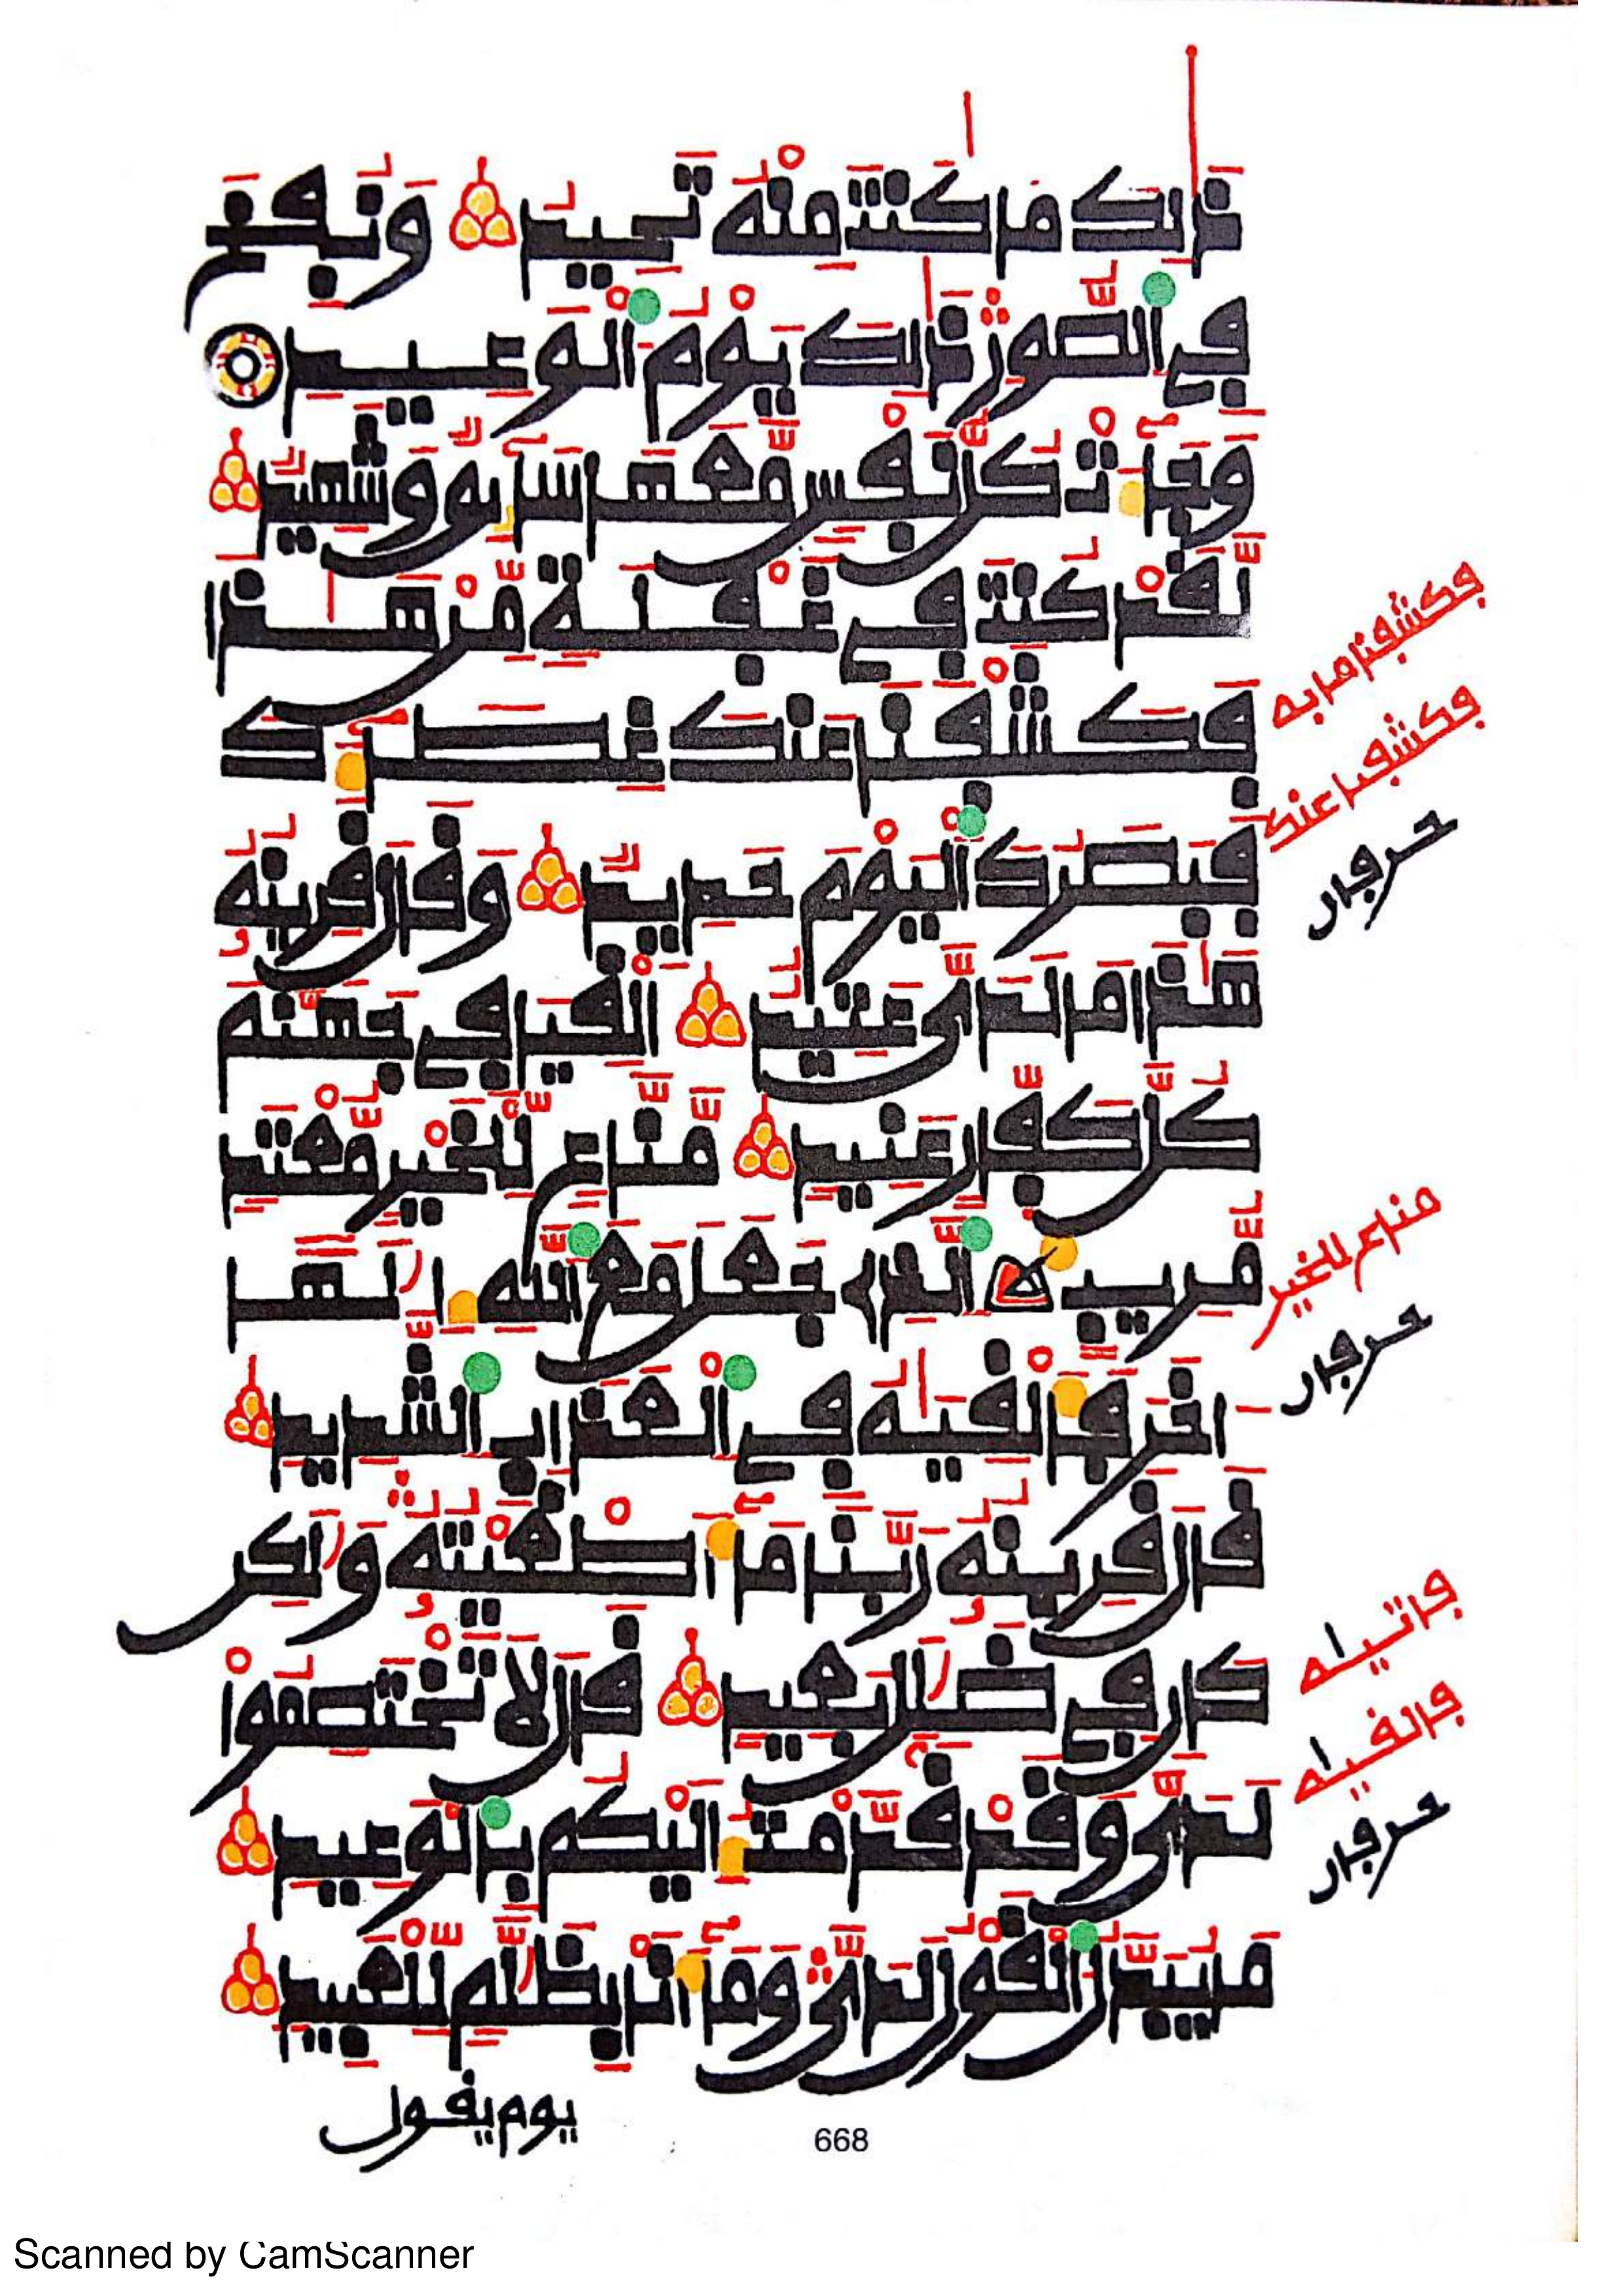 ذَٰلِكَ مَا كُنتَ مِنْهُ تَحِيدُ وَنُفِخَ
فِي الصُّورِ ذَٰلِكَ يَوْمُ الْوَعِيدِ
وَجَآءَتْ كُلُّ نَفْسٍ مَّعَهَا سَآئِقٌ وَشَهِيدٌ
لَّقَدْ كُنتَ فِي غَفْلَةٍ مِّنْ هَٰذَا
فَكَشَفْنَا عَنكَ غِطَآءَكَ
فَبَصَرُكَ الْيَوْمَ حَدِيدٌ وَقَالَ قَرِينُهُ
هَٰذَا مَا لَدَيَّ عَتِيدٌ أَلْقِيَا فِي جَهَنَّمَ
كُلَّ كَفَّارٍ عَنِيدٍ مَّنَّاعٍ لِّلْخَيْرِ مُعْتَدٍ
مُّرِيبٍ الَّذِي جَعَلَ مَعَ اللَّهِ إِلَٰهًا
ءَاخَرَ فَأَلْقِيَٰهُ فِي الْعَذَابِ الشَّدِيدِ
قَالَ قَرِينُهُ رَبَّنَا مَآ أَطْغَيْتُهُ وَلَٰكِن
كَانَ فِي ضَلَٰلٍ بَعِيدٍ قَالَ لَا تَخْتَصِمُوا
لَدَيَّ وَقَدْ قَدَّمْتُ إِلَيْكُم بِالْوَعِيدِ
مَا يُبَدَّلُ الْقَوْلُ لَدَيَّ وَمَآ أَنَا بِظَلَّٰمٍ لِّلْعَبِيدِ
يوم يقول
668
فكشفنا ما به
فكشفنا عنك
حرفان
مناع للخير
حرفان
فاتياه
فالقياه
حرفان
Scanned by CamScanner